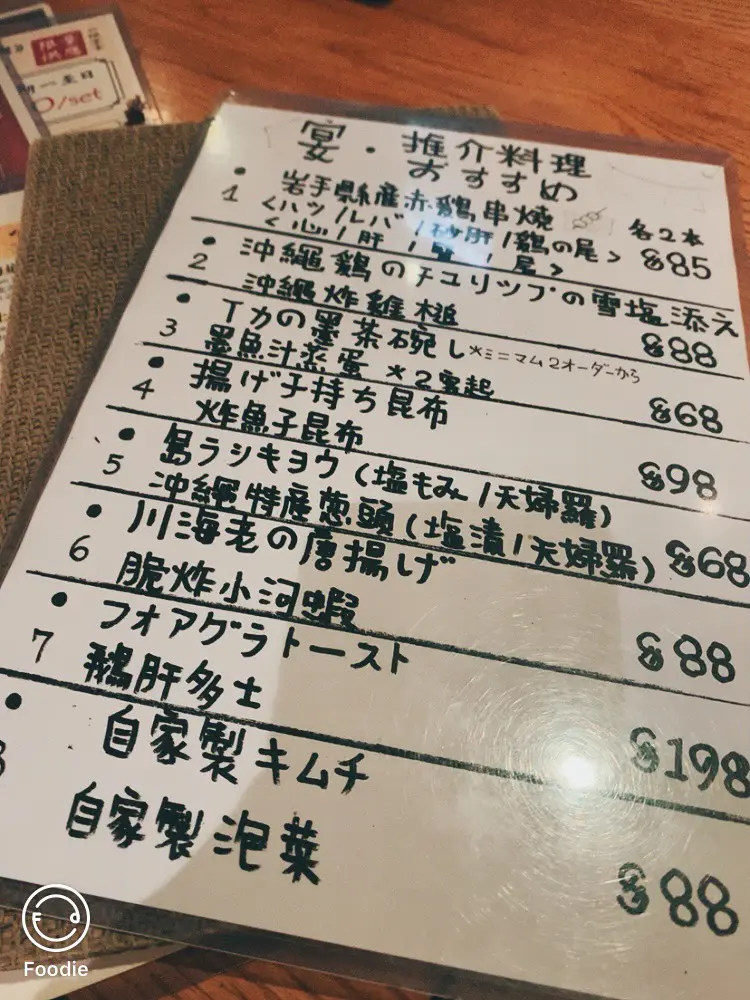 期一至日
0/set
宴・推介料理
おすすめ
• 岩手縣産赤鶏串燒 各2本
1 <ハツ/ルバ/砂肝/鶏の尾> $85
<心/肝/腎/尾>
• 沖縄鶏のチユリツプの雪塩添え
2 沖繩炸雞槌 $88
• イカの墨茶碗し *ミニマム2オーダーから
3 墨魚汁蒸蛋 *2客起 $68
• 揚げ子持ち昆布
4 炸魚子昆布 $98
• 島ラシキヨウ (塩もみ/天婦羅)
5 沖繩特産葱頭 (塩漬/天婦羅) $68
• 川海老の唐揚げ
6 脆炸小河蝦 $88
• フオアグラトースト
7 鵝肝多士 $198
• 自家製キムチ
8 自家製泡菜 $88
Foodie